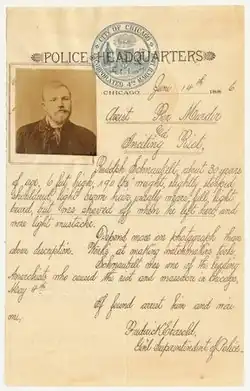 CITY OF CHICAGO
INCORPORATED 4th MARCH
POLICE HEADQUARTERS
CHICAGO June 14th 1886
Arrest For Murder
Inciting Riot,
Rudolph Schnaubelt, about 30 years
of age, 6 feet high, 190 lbs weight, slightly stooped
shouldered, light brown hair, full, light
beard, but was shaved off when he left here and
wore light mustache.
Depend more on photograph than
above description. Works at making
Schnaubelt was one of the leading
Anarchists who caused the riot and massacre in Chicago,
May 4th
If found arrest him and wire
me.
Frederick Ebersold
Gen'l Superintendent of Police.